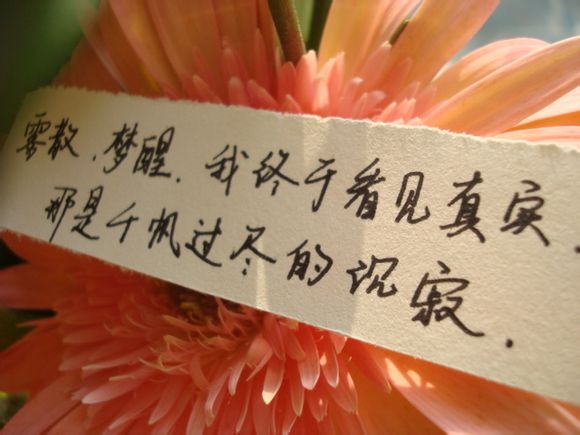 雾散.梦醒.我终于看见真实.
那是千帆过尽的沉寂.